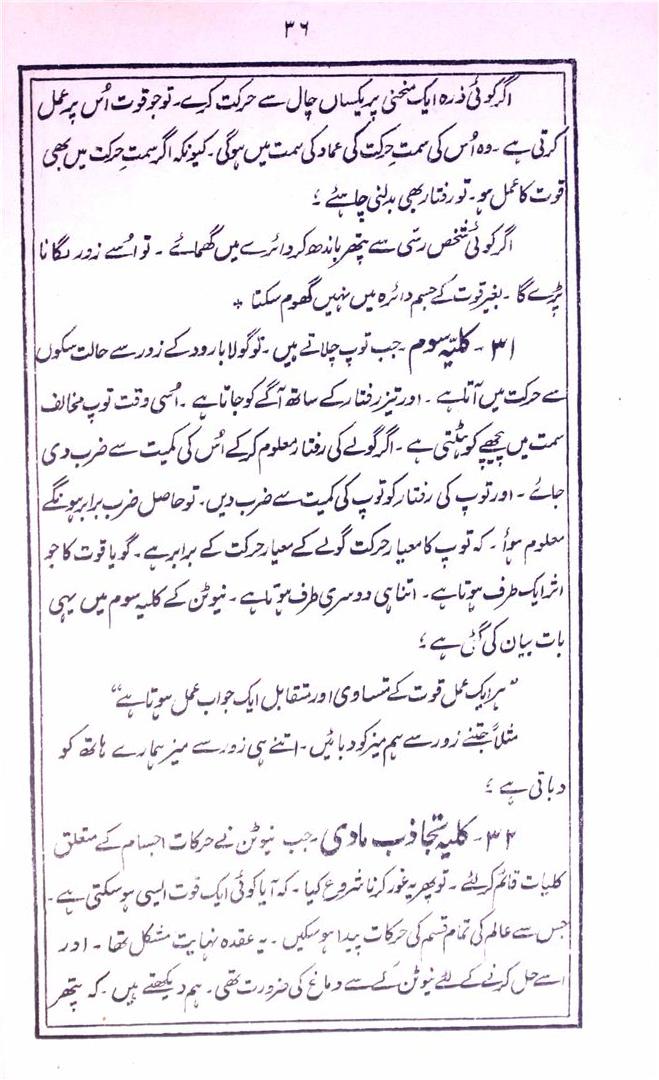 ۳۶
اگر کوئی ذرہ ایک منحنی پر یکساں چال سے حرکت کرے۔ تو جو قوت اُس پر عمل
کرتی ہے۔ وہ اُس کی سمت حرکت کی عماد کی سمت میں ہوگی۔ کیونکہ اگر سمتِ حرکت میں بھی
قوت کا عمل ہو۔ تو رفتار بھی بدلنی چاہئے ؛
اگر کوئی شخص رسّی سے پتھر باندھ کر دائرے میں گھمائے ۔ تو اُسے زور لگانا
پڑے گا ۔ بغیر قوت کے جسم دائرہ میں نہیں گھوم سکتا *
۳۱ - کلیۂ سوم - جب توپ چلاتے ہیں ۔ تو گولا بارود کے زور سے حالت سکوں
سے حرکت میں آتا ہے ۔ اور تیز رفتار کے ساتھ آگے کو جاتا ہے ۔ اُسی وقت توپ مخالف
سمت میں پیچھے کو ہٹتی ہے ۔ اگر گولے کی رفتار معلوم کر کے اُس کی کمیت سے ضرب دی
جائے ۔ اور توپ کی رفتار کو توپ کی کمیت سے ضرب دیں۔ تو حاصل ضرب برابر ہونگے
معلوم ہوأ ۔ کہ توپ کا معیار حرکت گولے کے معیار حرکت کے برابر ہے ۔ گویا قوت کا جو
اثر ایک طرف ہوتا ہے ۔ اتنا ہی دوسری طرف ہوتا ہے ۔ نیوٹن کے کلیہ سوم میں یہی
بات بیان کی گئی ہے ؛
”ہر ایک عمل قوت کے مساوی اور متقابل ایک جواب عمل ہوتا ہے“
مثلاً جتنے زور سے ہم میز کو دبائیں ۔ اتنے ہی زور سے میز ہمارے ہاتھ کو
دباتی ہے ؛
۳۲ - کلیہ تجاذب مادی - جب نیوٹن نے حرکات اجسام کے متعلق
کلیات قائم کر لئے ۔ تو پھر یہ غور کرنا شروع کیا ۔ کہ آیا کوئی ایک قوت ایسی ہو سکتی ہے ۔
جس سے عالم کی تمام قسم کی حرکات پیدا ہو سکیں ۔ یہ عقدہ نہایت مشکل تھا ۔ اور
اسے حل کرنے کے لئے نیوٹن کے سے دماغ کی ضرورت تھی ۔ ہم دیکھتے ہیں ۔ کہ پتھر